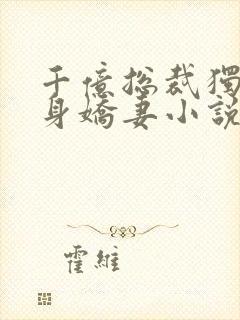 千億總裁獨
身嬌妻小說
霍維